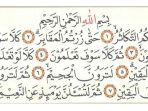 بِسْمِ اللَّهِ الرَّحْمَٰنِ الرَّحِيمِ
التَّكَاثُرُ ۝١ حَتَّىٰ زُرْتُمُ الْمَقَابِرَ ۝٢
تَعْلَمُونَ ۝٣ ثُمَّ كَلَّا سَوْفَ تَعْلَمُونَ ۝٤ كَلَّا لَوْ
الْيَقِينِ ۝٥ لَتَرَوُنَّ الْجَحِيمَ ۝٦ ثُمَّ لَتَرَوُنَّهَا
۝٧ ثُمَّ لَتُسْأَلُنَّ يَوْمَئِذٍ عَنِ النَّعِيمِ